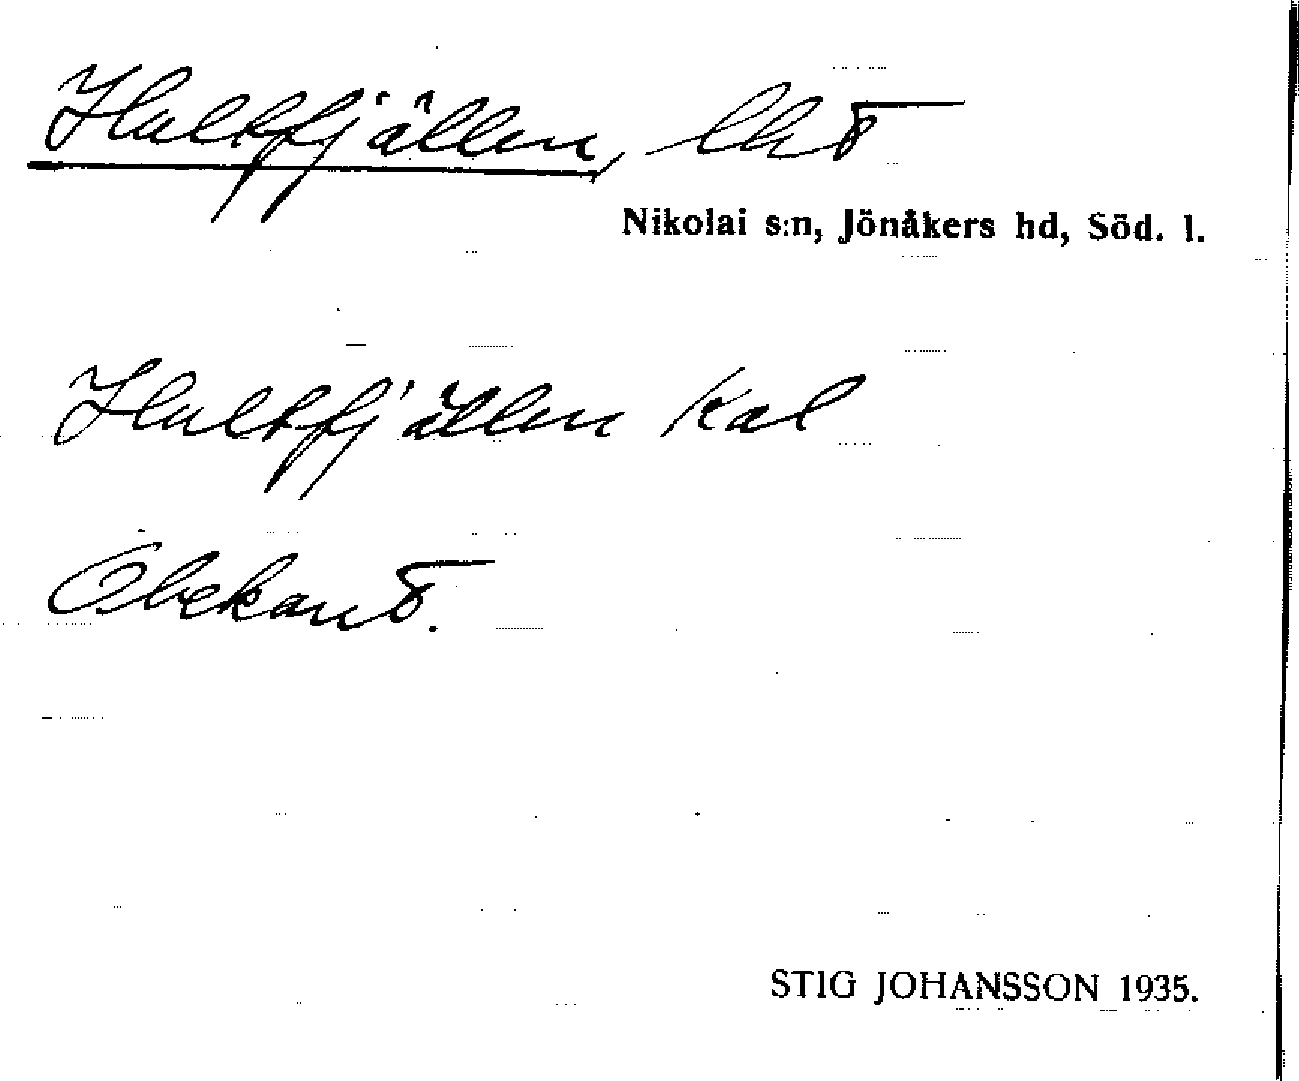 Hultfjällen, lht
Nikolai s:n, Jönåkers hd, Söd. l.
Hultfjällen kal
Obekant.
STIG JOHANSSON 1935.